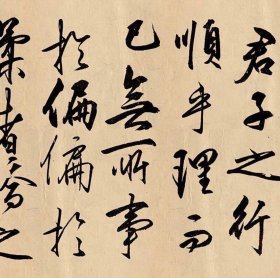 君子之行
順乎理而
已無所事
於偏偏於
柔者齊之